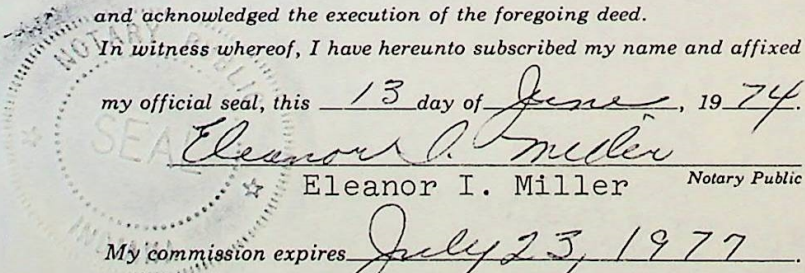 and acknowledged the execution of the foregoing deed.
In witness whereof, I have hereunto subscribed my name and affixed
my official seal, this 13 day of June, 1974.
Eleanor I. Miller
Eleanor I. Miller Notary Public
My commission expires July 23, 1977.
NOTARY PUBLIC
SEAL
INDIANA